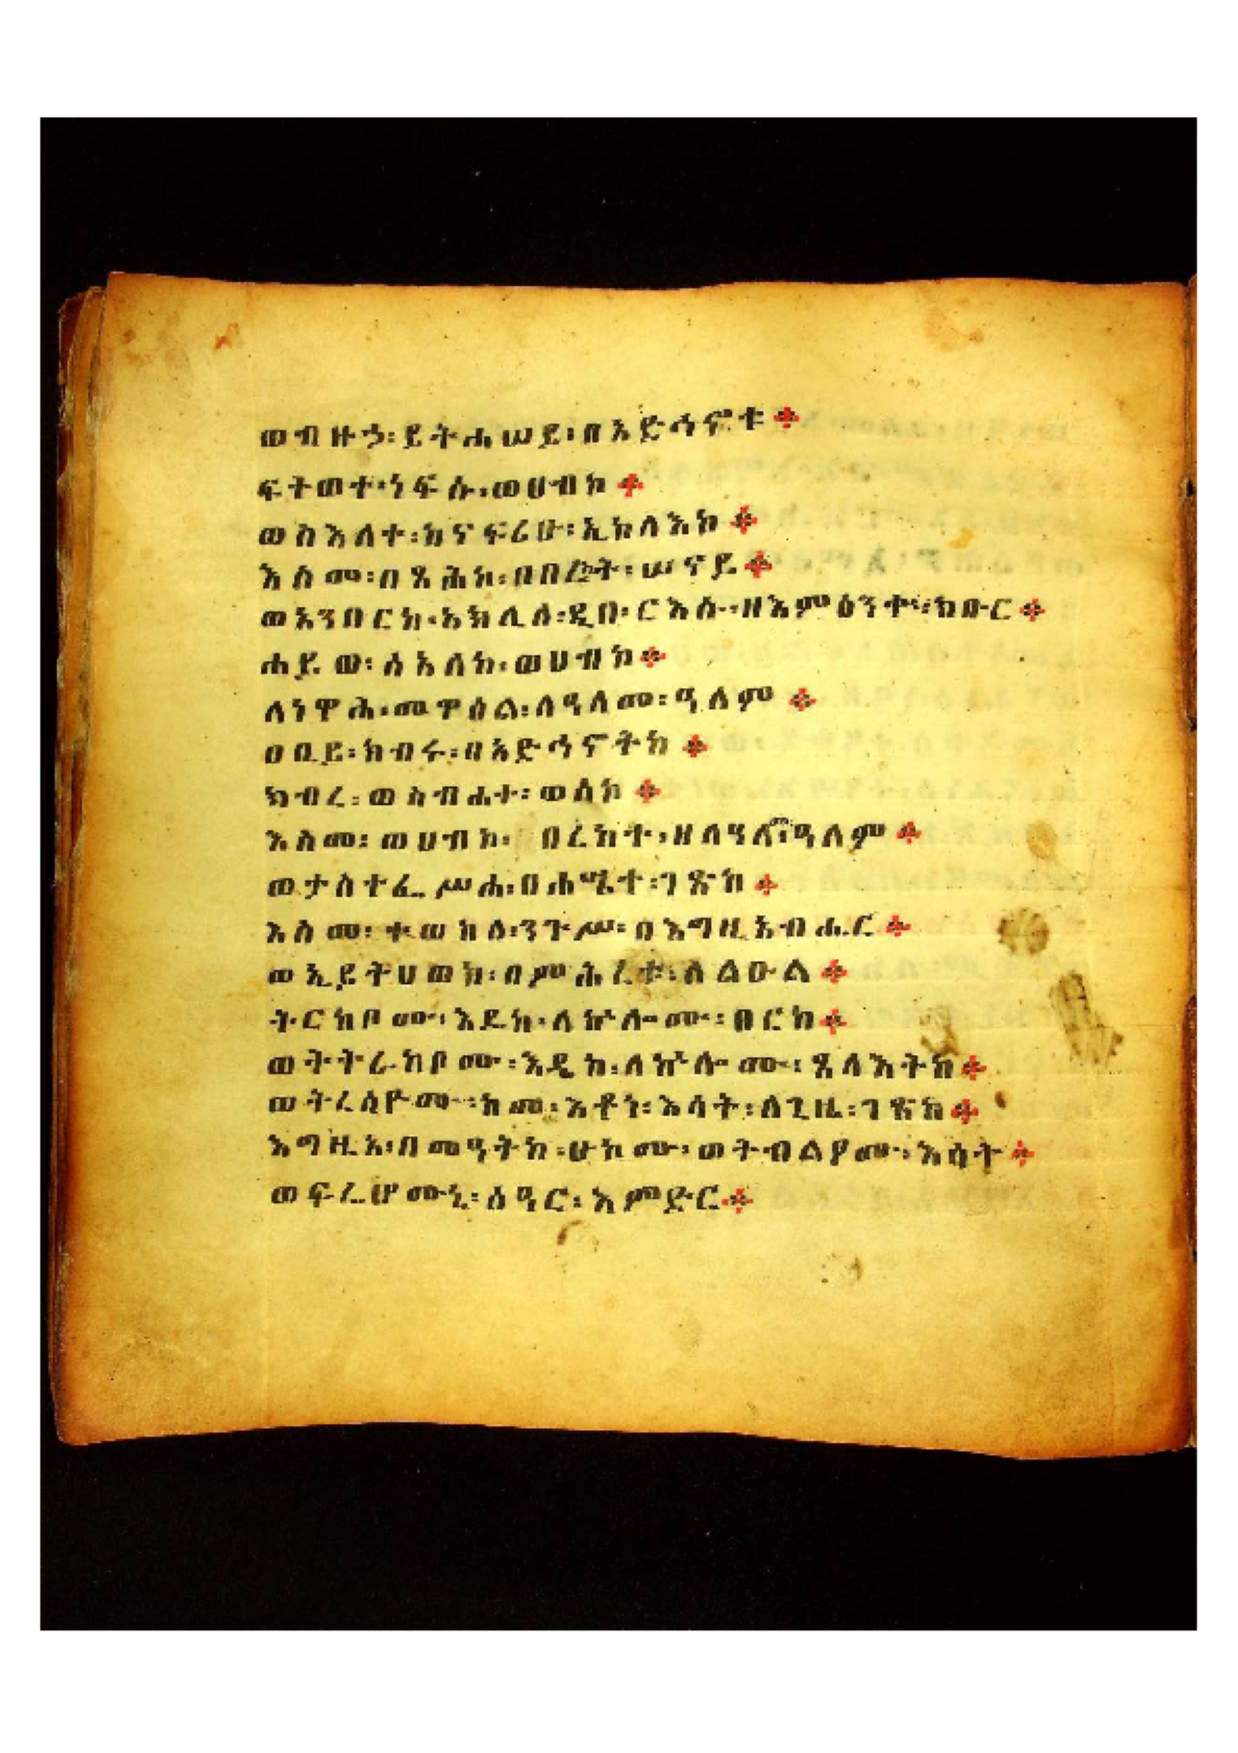 ወብዙኃ፡ ይትሐሠይ፡ በአድኅኖቱ ።
ፍትወተ፡ ነፍሱ፡ ወሀብኮ ።
ወስእለተ፡ ከናፍሪሁ፡ ኢከላእኮ ።
እስመ፡ በጻሕከ፡ በበረከት፡ ሠናይ ።
ወአንበርከ፡ አክሊለ፡ ዲበ፡ ርእሱ፡ ዘእምዕንተ፡ ክቡር ።
ሐይወ፡ ሰአለከ፡ ወሀብኮ ።
ለነዋሕ፡ መዋዕል፡ ለዓለመ፡ ዓለም ።
ዐቢይ፡ ክብሩ፡ በአድኅኖትከ ።
ክብረ፡ ወስብሐተ፡ ወሰከ ።
እስመ፡ ወሀብኮ፡ በረከተ፡ ዘለዓለመ፡ ዓለም ።
ወታስተፌሥሖ፡ በሐሤተ፡ ገጽከ ።
እስመ፡ ተወከለ፡ ንጉሥ፡ በእግዚአብሔር ።
ወኢይትሀወክ፡ በምሕረቱ፡ ለልዑል ።
ትርከቦሙ፡ እዴከ፡ ለኵሎሙ፡ ፀርከ ።
ወትትራከቦሙ፡ እዴከ፡ ለኵሎሙ፡ ጸላእትከ ።
ወትረስዮሙ፡ ከመ፡ እቶነ፡ እሳት፡ ለጊዜ፡ ገጽከ ።
እግዚኦ፡ በመዓትከ፡ ሁኮሙ፡ ወትብልዖሙ፡ እሳት ።
ወፍሬሆሙኒ፡ ሰዓር፡ እምድር ።